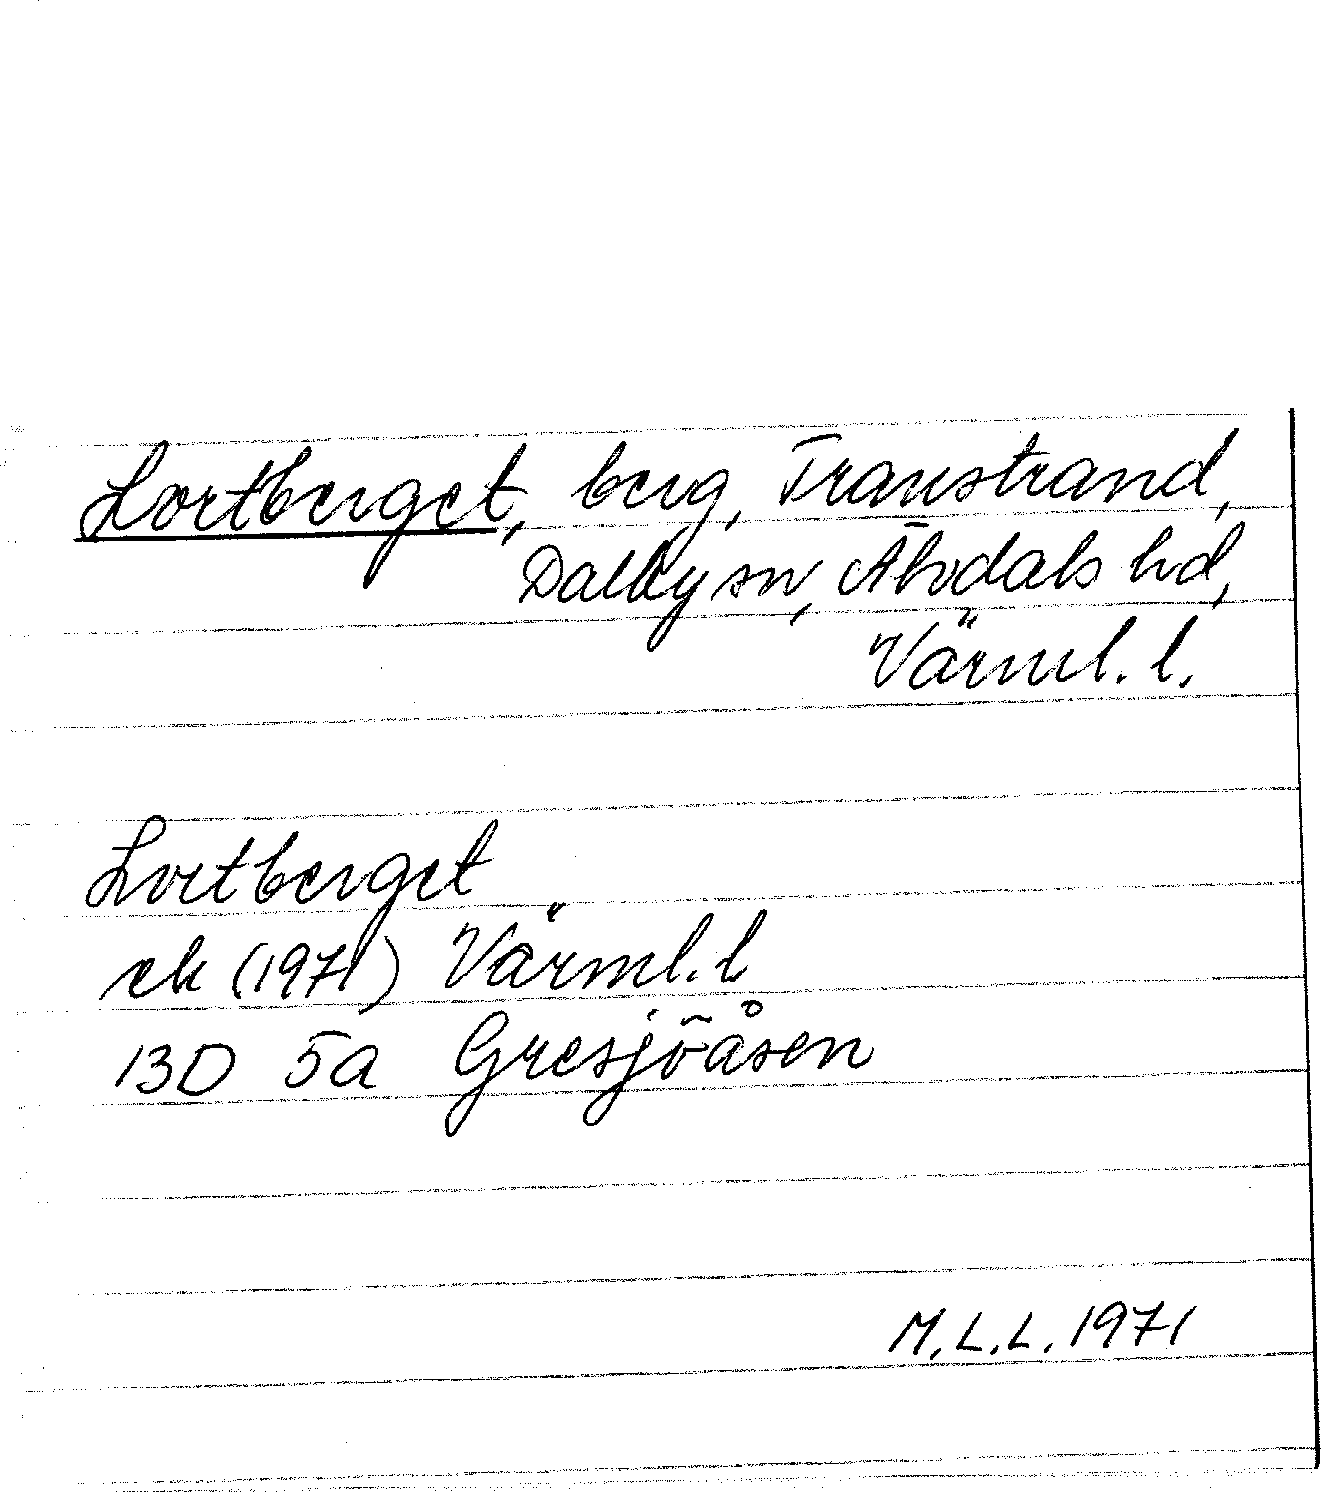 Lortberget, berg, Transtrand,
Dalby sn, Älvdals hd,
Värml. l.
Lortberget
ek (1971) Värml. l
13D 5a Gresjöåsen
M.L.L. 1971